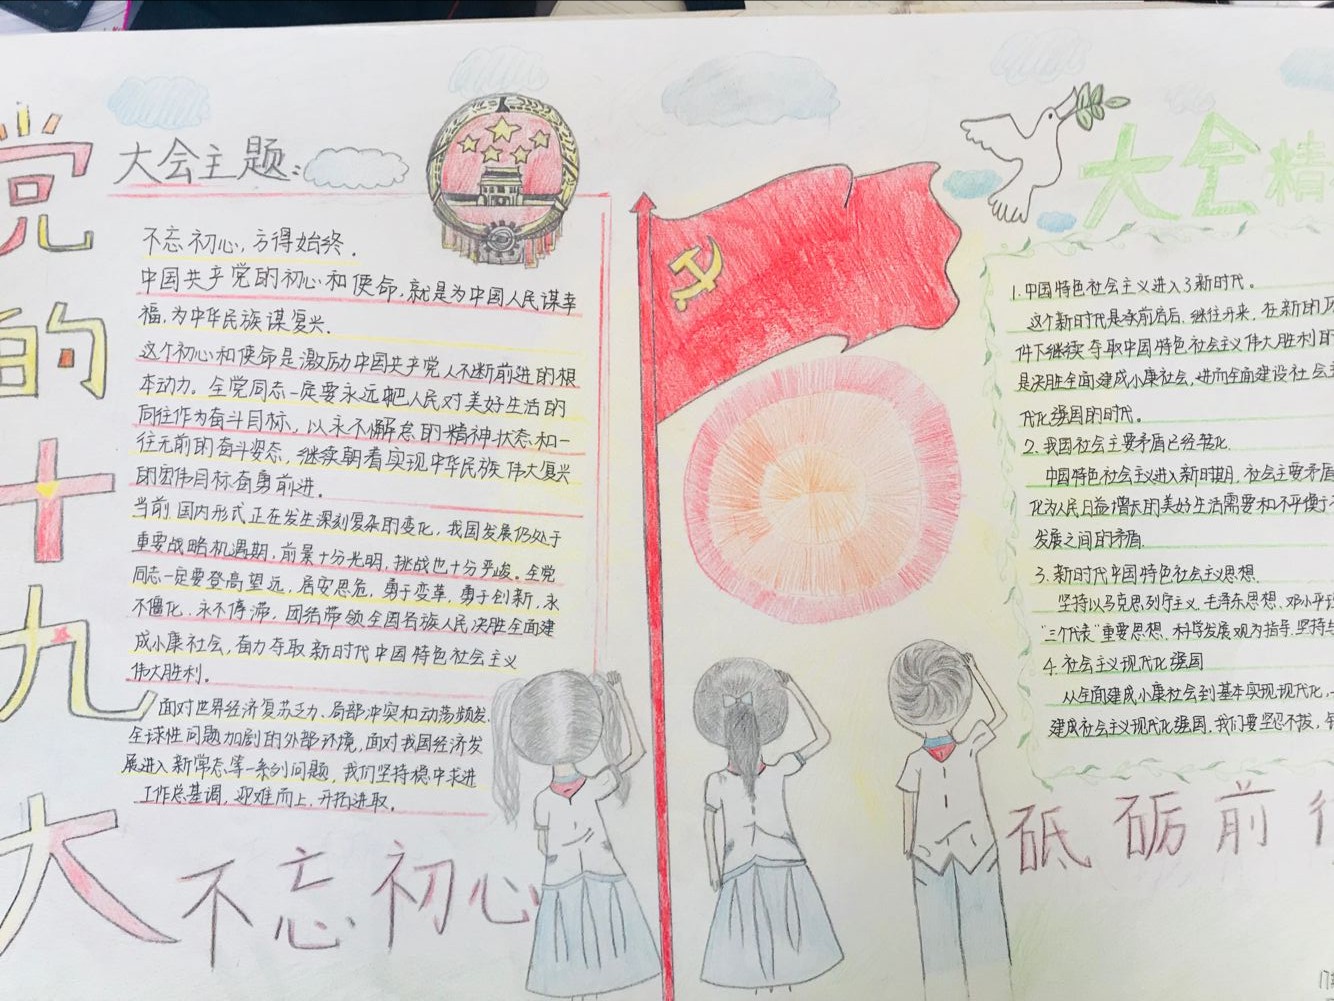 党的十九大
大会主题:
不忘初心,方得始终.
中国共产党的初心和使命,就是为中国人民谋幸
福,为中华民族谋复兴.
这个初心和使命是激励中国共产党人不断前进的根
本动力。全党同志一定要永远把人民对美好生活的
向往作为奋斗目标,以永不懈怠的精神状态和一
往无前的奋斗姿态,继续朝着实现中华民族伟大复兴
的宏伟目标奋勇前进.
当前,国内形式正在发生深刻复杂的变化,我国发展仍处于
重要战略机遇期,前景十分光明,挑战也十分严峻。全党
同志一定要登高望远,居安思危,勇于变革,勇于创新,永
不僵化,永不停滞,团结带领全国各族人民决胜全面建
成小康社会,奋力夺取新时代中国特色社会主义
伟大胜利.
面对世界经济复苏乏力、局部冲突和动荡频发、
全球性问题加剧的外部环境,面对我国经济发
展进入新常态等一系列问题,我们坚持稳中求进
工作总基调,迎难而上,开拓进取.
不忘初心
大会精
1.中国特色社会主义进入3新时代。
这个新时代是承前启后、继往开来,在新的历
件下继续夺取中国特色社会主义伟大胜利的
是决胜全面建成小康社会,进而全面建设社会主
代化强国的时代。
2.我国社会主要矛盾已经转化.
中国特色社会主义进入新时期,社会主要矛盾
化为人民日益增长的美好生活需要和不平衡
发展之间的矛盾.
3.新时代中国特色社会主义思想.
坚持以马克思列宁主义、毛泽东思想、邓小平
"三个代表"重要思想、科学发展观为指导,坚持
4.社会主义现代化强国
从全面建成小康社会到基本实现现代化,
建成社会主义现代化强国,我们要坚忍不拔,
砥砺前行